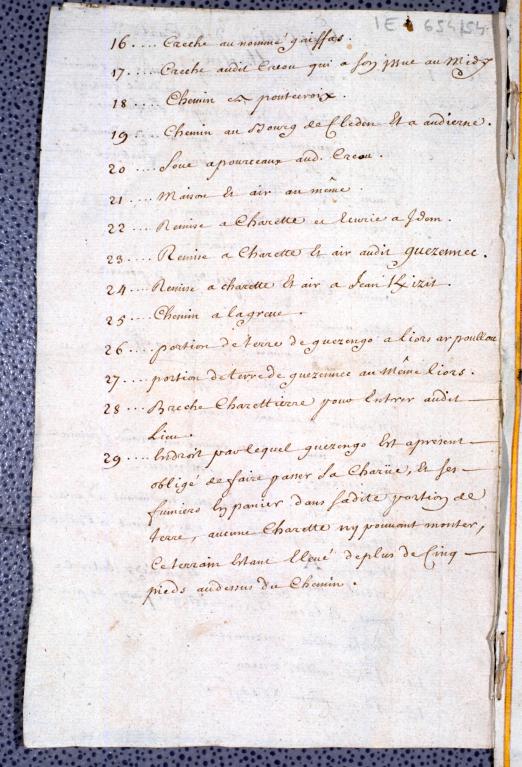 1E 654/54
16 .... Creche au nommé gaiffas.
17 .... Creche audit Creou qui a son issue au Midy
18 .... Chemin de pontecroix.
19 .... Chemin au Bourg de Cleden Et a audierne.
20 .... Soue a pourceaux aud. Creou.
21 .... Maison Et air au même.
22 .... Remise a Charette et Ecurie a Idem.
23 .... Remise a Charette Et air audit guezennec.
24 .... Remise a charette Et air a Jean
25 .... Chemin a lagreve.
26 .... portion de terre de guezengo a liors ar poullou
27 .... portion de terre de guezennec au Même liors.
28 .... Breche Charettierre pour Entrer audit
Lieu.
29 .... Endroit par lequel guezengo Est apresent
obligé de faire passer Sa Charüe, Et ses
fumiers En panier dans sadite portion de
terre, aucune Charette ny pouvant monter,
Ce terrain Etant Elevé de plus de Cinq
pieds audessus du Chemin.